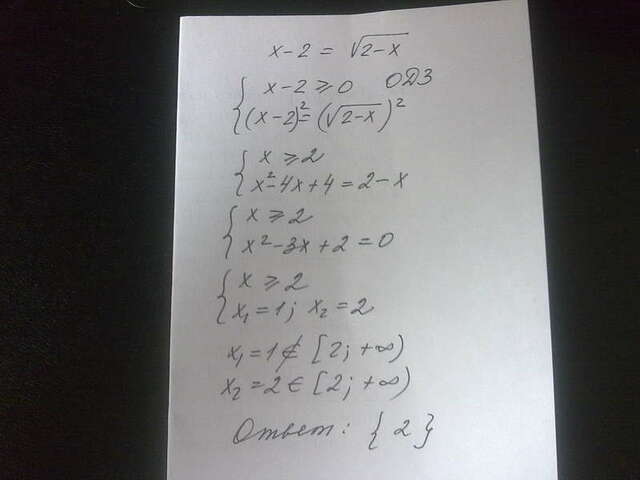 x-2 = √(2-x)
{ x-2 ⩾ 0 ОДЗ
(x-2)² = (√(2-x))²
{ x ⩾ 2
x²-4x+4 = 2-x
{ x ⩾ 2
x²-3x+2 = 0
{ x ⩾ 2
x₁=1; x₂=2
x₁=1 ∉ [2; +∞)
x₂=2 ∈ [2; +∞)
Ответ: {2}